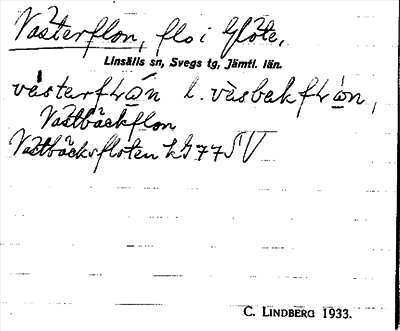 Västerflon, flo i Glöte,
Linsälls sn, Svegs tg, Jämtl. län.
västerflọn l.väsbakflọn,
Västbäckflon
Västbäcksfloten LG 77 SV
C. LINDBERG 1933.